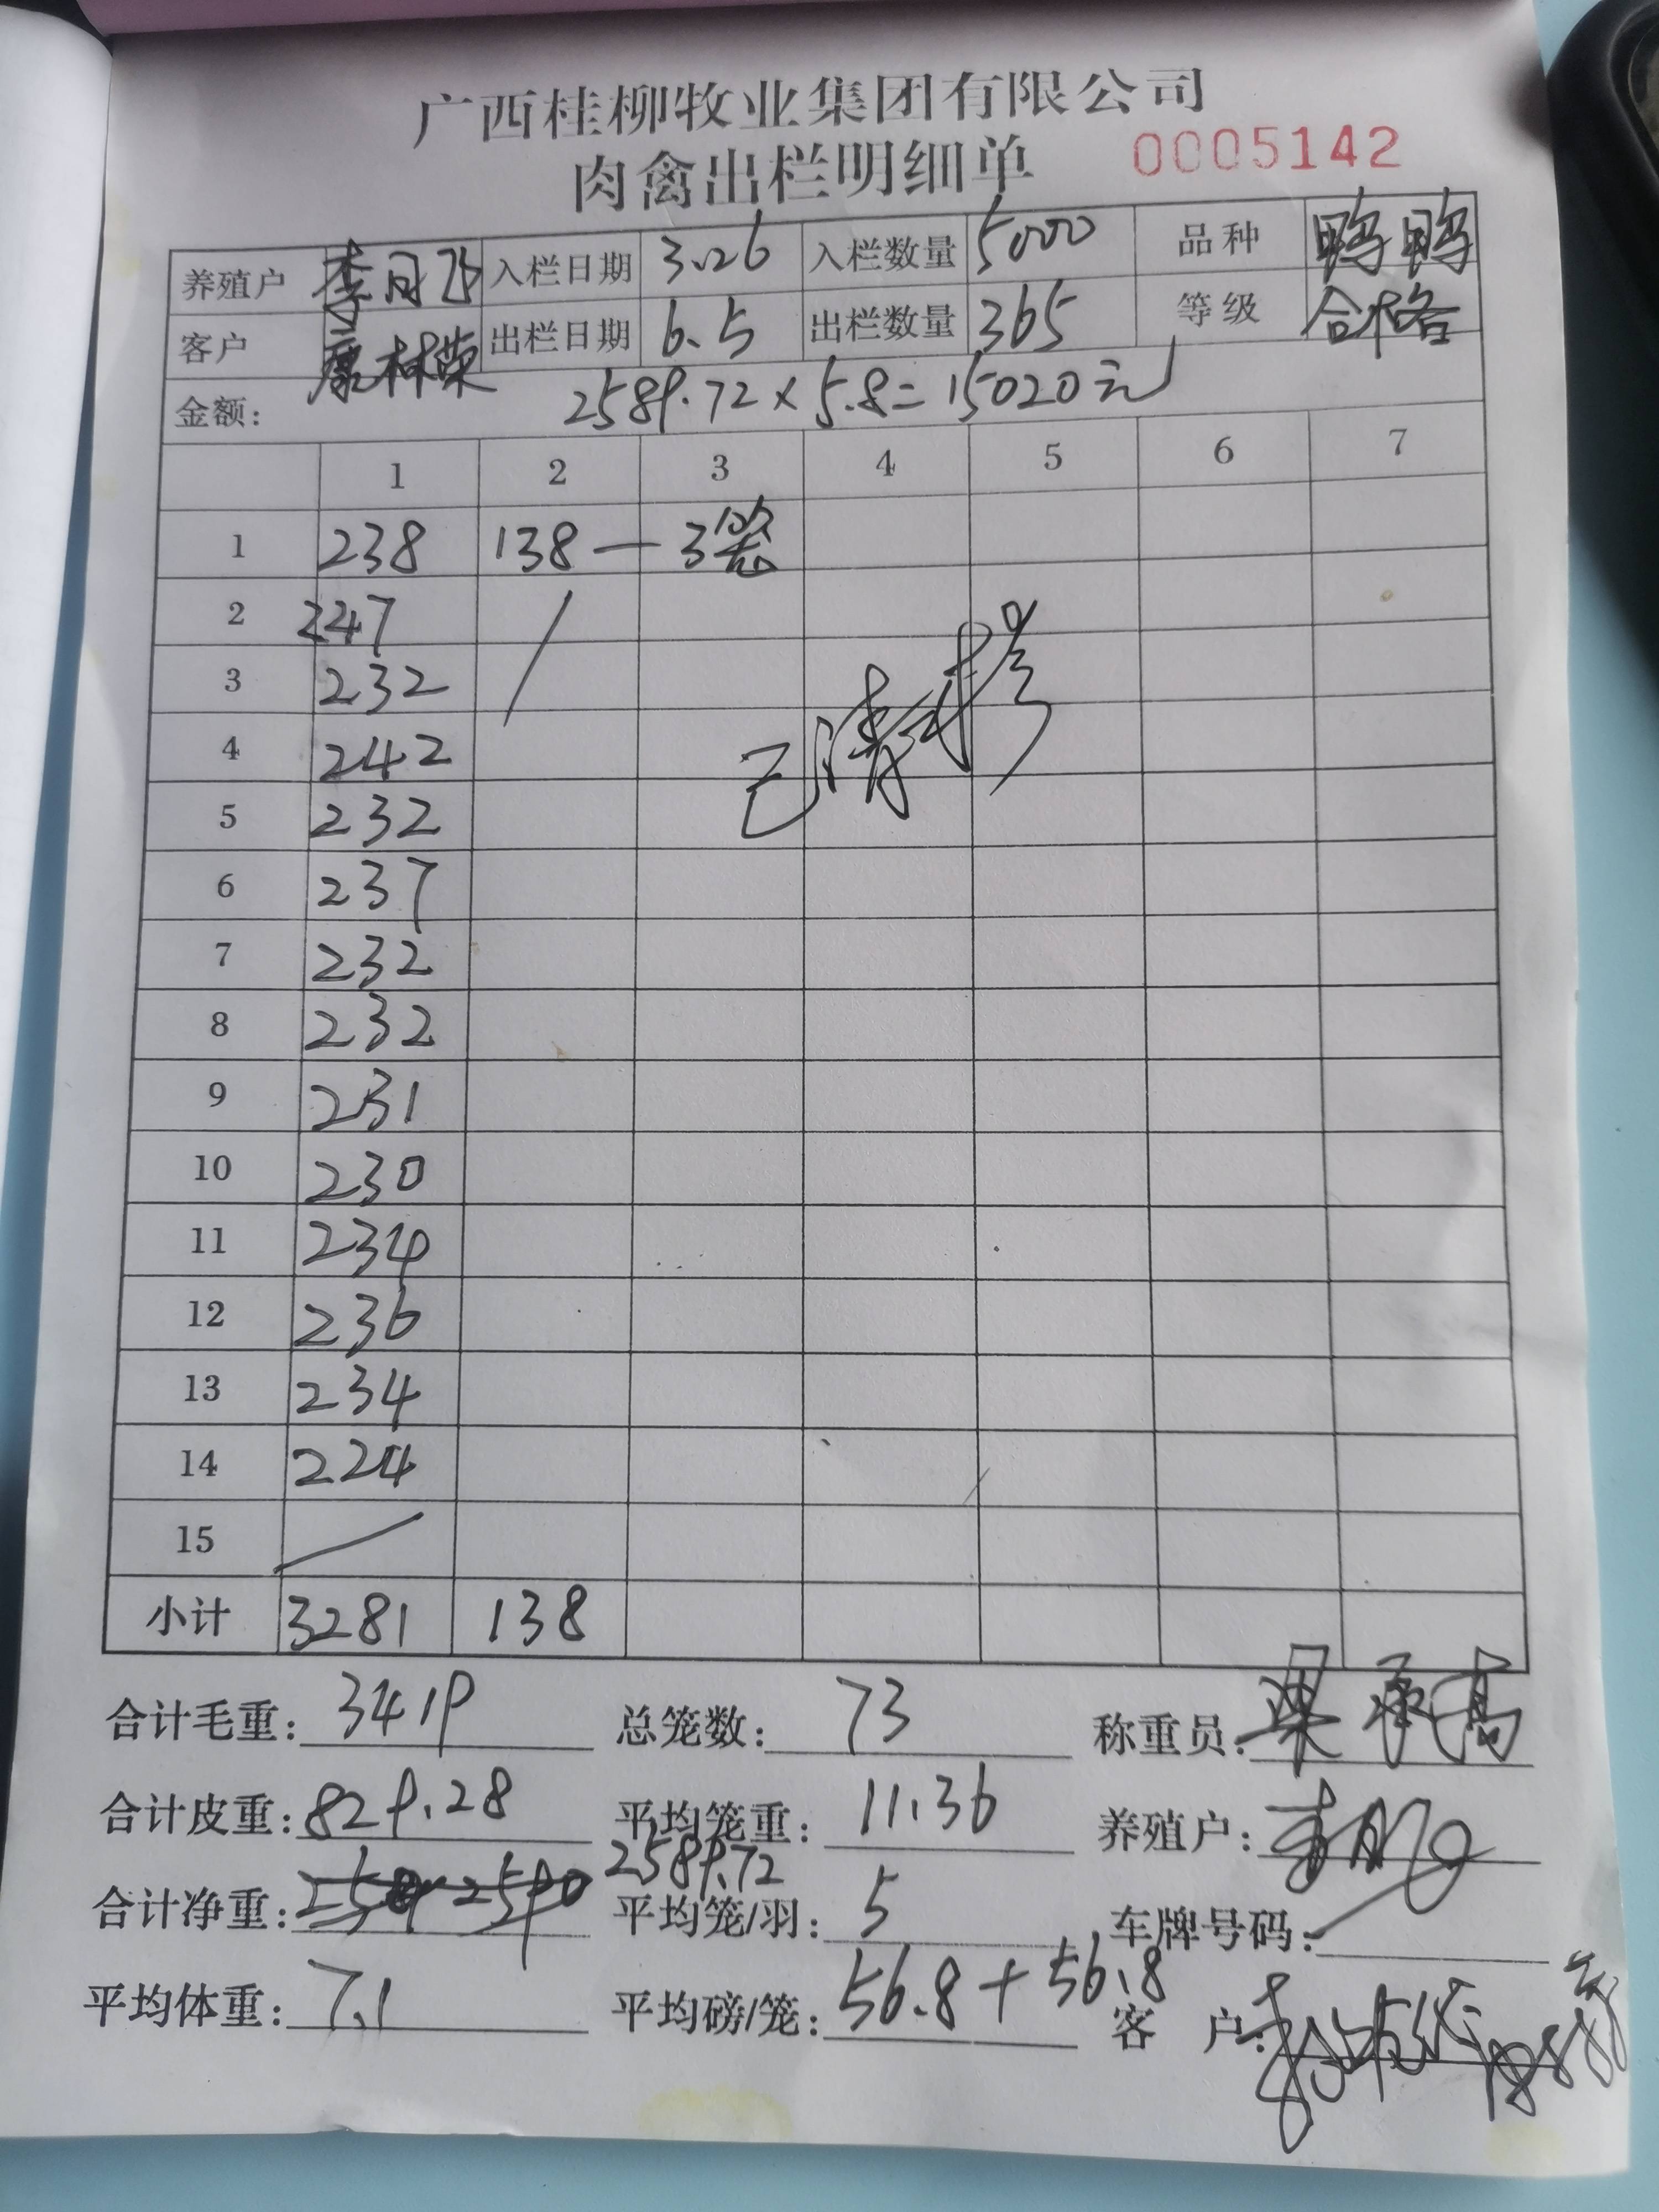 广西桂柳牧业集团有限公司
肉禽出栏明细单 0005142
养殖户 李月飞 入栏日期 3.26 入栏数量 5000 品种 鸭鸭
客户 林荣 出栏日期 6.5 出栏数量 365 等级 合格
金额: 2589.72×5.8=15020元
1 2 3 4 5 6 7
1 238 138 — 3笼
2 247
3 232
4 242
5 232
6 237
7 232
8 232
9 231
10 230
11 234
12 236
13 234
14 224
15
小计 3281 138
已清
合计毛重: 3419 总笼数: 73 称重员: 梁承高
合计皮重: 829.28 平均笼重: 11.36 养殖户:
2589.72
合计净重: 2590 平均笼/羽: 5 车牌号码:
平均体重: 7.1 平均磅/笼: 56.8+56.8 客户: